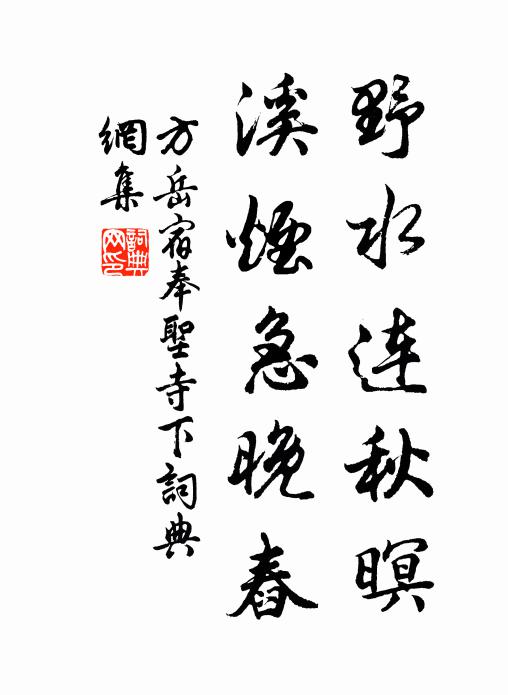 野水连秋暝
溪煙急晚舂
方岳宿奉聖寺下詞典
網集
詞典网印